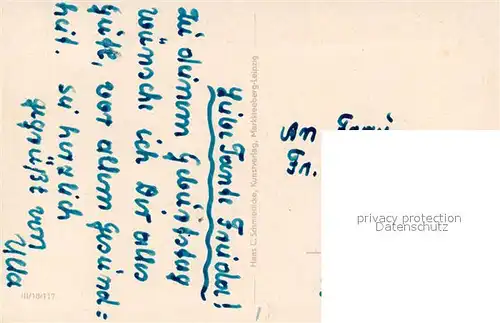 Liebe Tante Frieda!
Zu deinem Geburtstag
wünsche ich Dir alles
Gute, vor allem Gesund:
heit. Sei herzlich
gegrüßt von
Ulla
III/18/117
Hans C. Schmiedicke, Kunstverlag, Markkleeberg-Leipzig
An
Fr.
privacy protection
www.ansichtskartenversand.com